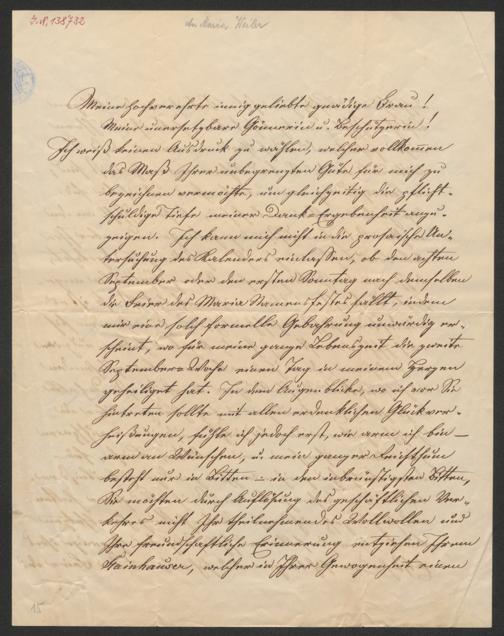 I.N. 138732
An Marie Weiler
Meine hochverehrte innig geliebte gnädige Frau!
Meine unersetzbare Gönnerin u. Beschützerin!
Ich weiß keinen Ausdruck zu wählen, welcher vollkommen
das Maß Ihrer unbegrenzten Güte für mich zu
bezeichnen vermöchte, um gleichzeitig die pflicht-
schuldige Tiefe meiner Dank-Ergebenheit anzu-
zeigen. Ich kann mich nicht in die prosaische Un-
tersuchung des Kalenders einlassen, ob den achten
September oder den ersten Sonntag nach demselben
die Feier des Maria Namensfestes fällt, indem
mir eine solch formelle Gebahrung unwürdig er-
scheint, wo für meine ganze Lebenszeit die zweite
September-Woche einen Tag in meinem Herzen
geheiliget hat. In dem Augenblicke, wo ich vor Sie
hintreten sollte mit allen erdenklichen Glückver-
heißungen, fühle ich jedoch erst, wie arm ich bin —
arm an Wünschen, u. mein ganzer Reichthum
besteht nur in Bitten — in den inbrünstigsten Bitten,
Sie möchten durch Auflösung des geschäftlichen Ver-
kehres nicht Ihr theilnehmendes Wollwollen und
Ihre freundschaftliche Erinnerung entziehen Ihrem
Stainhauser, welcher in Ihrer Gewogenheit einen
15